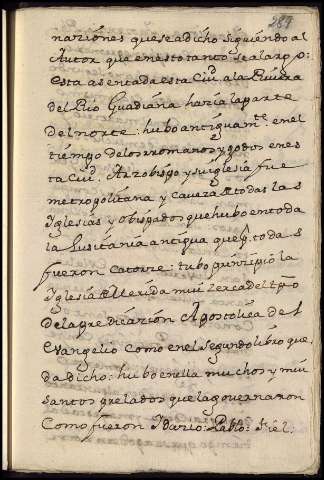 289
naziones que se a dicho siguiendo al
Autor que en esto tanto se alargo:
Esta asentada esta Ciu.d a la Rivera
del Rio Guadiana hazia la parte
del norte: hubo antiguam.te en el
tiempo de los rromanos y godos en es
ta Ciu.d Arzobispo y su iglesia fue
metropolitana y caveza de todas las
Yglesias y obispados que hubo en toda
la Lusitania antigua que todas
fueron catorze: tubo prinzipio la
Yglesia de Merida mui zerca del tpo
de la predicazion Apostolica del
Evangelio como en el segundo libro que
da dicho: hubo en ella muchos y mui
santos prelados que la governaron
Como fueron Idazio: Pablo: fiel.